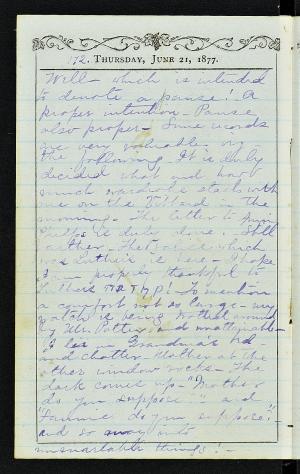 172. THURSDAY, JUNE 21, 1877.
Well - which is intended
to denote a pause! A
proper intention - Pause
also proper - Some words
are very valuable
the following. It is duly
decided what and how
much wardrobe starts with
me on the in the
morning - The letter to
is duly done. Still
another - The which
was Luther's is here - I hope
I am properly thankful to
Luther To mention
a comfort not as large - my
is being
by Mr. and
I lie on Grandma's bed
and chatter - Mother at the
other window rocks - The
dark comes up - "Mother
do you suppose" - and
"Fannie do you suppose" -
and so away into
unsearchable things! -